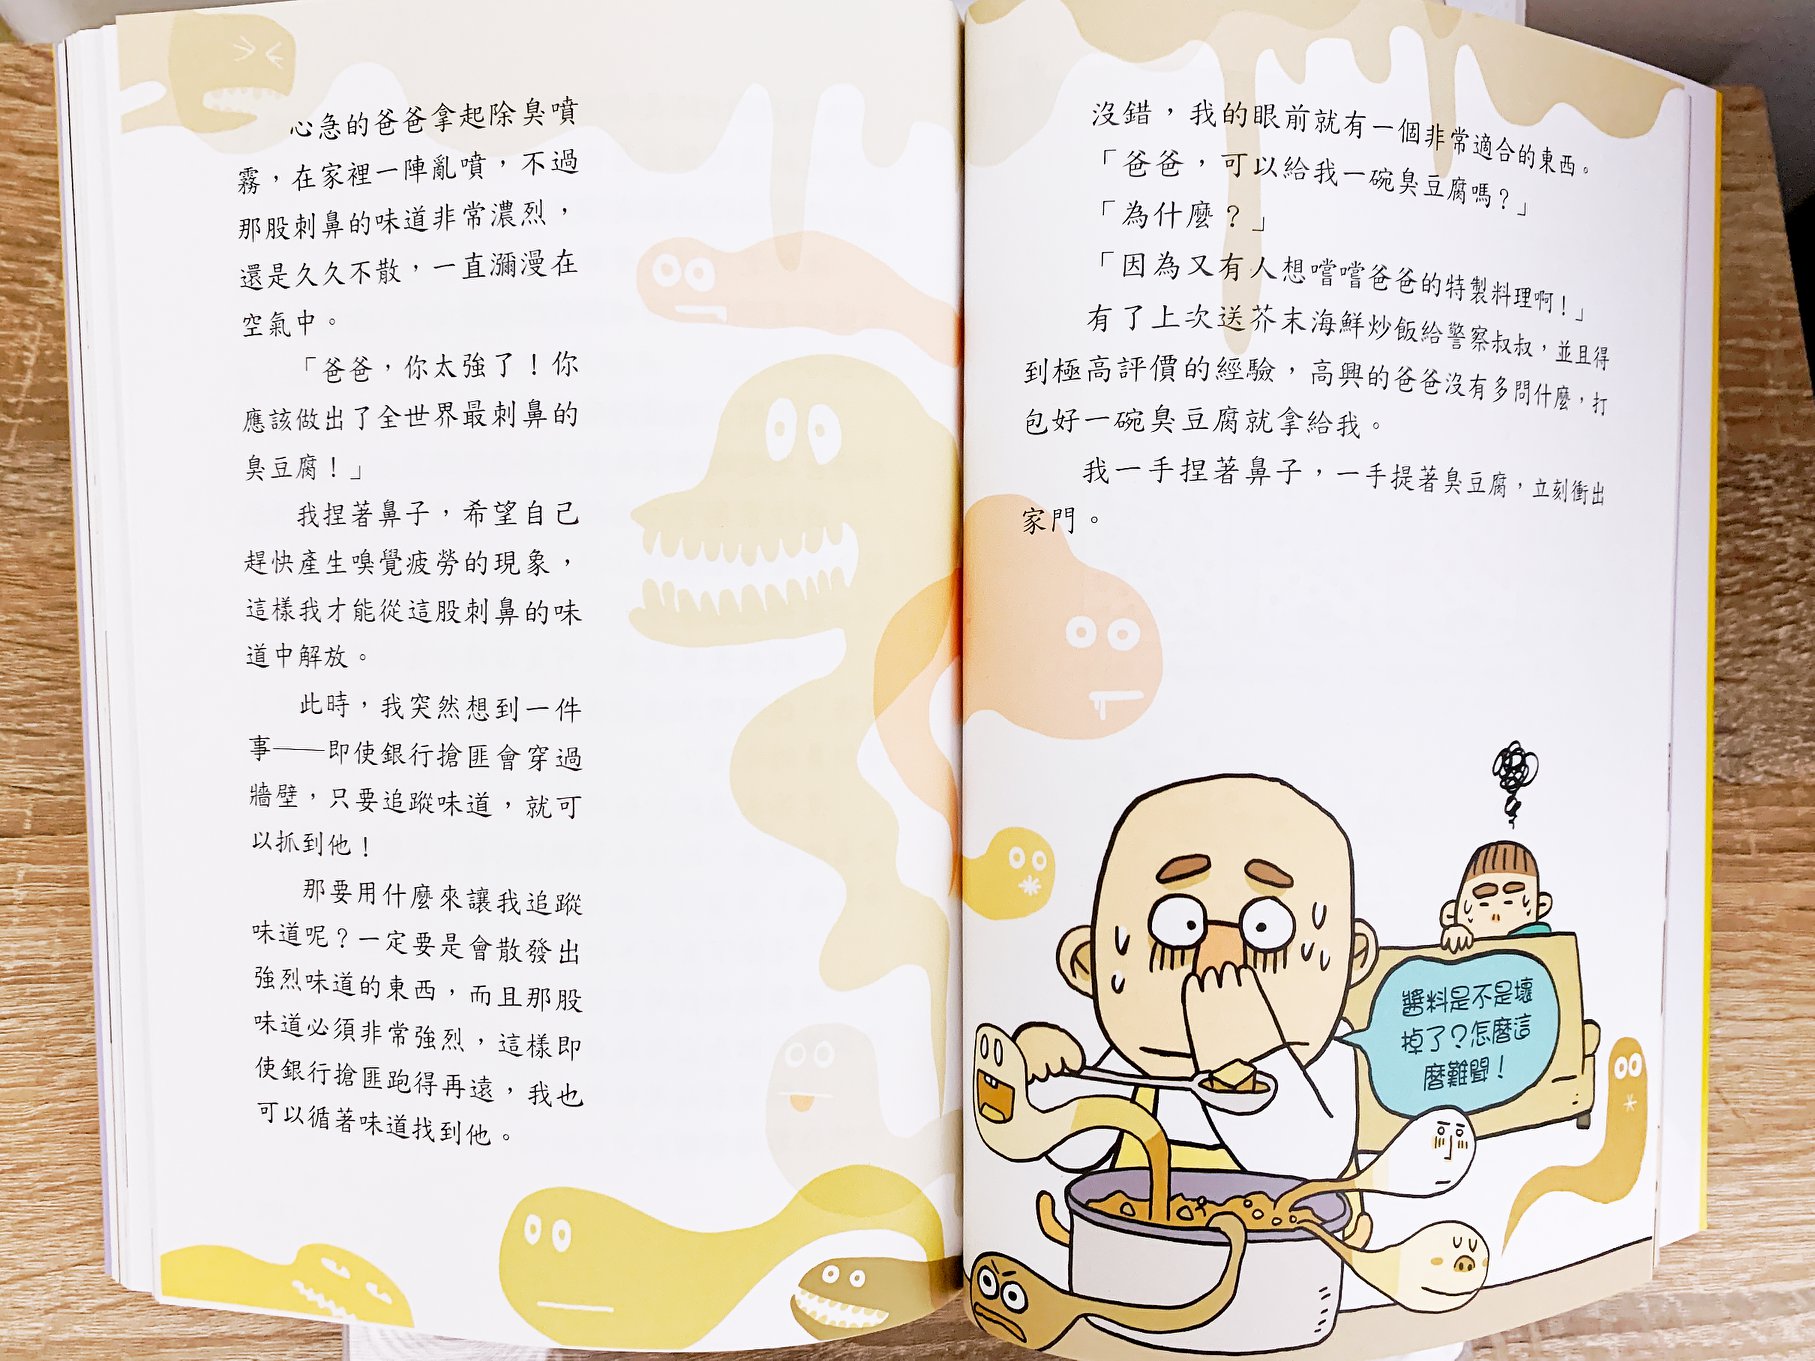 心急的爸爸拿起除臭噴
霧，在家裡一陣亂噴，不過
那股刺鼻的味道非常濃烈，
還是久久不散，一直瀰漫在
空氣中。
「爸爸，你太強了！你
應該做出了全世界最刺鼻的
臭豆腐！」
我捏著鼻子，希望自己
趕快產生嗅覺疲勞的現象，
這樣我才能從這股刺鼻的味
道中解放。
此時，我突然想到一件
事——即使銀行搶匪會穿過
牆壁，只要追蹤味道，就可
以抓到他！
那要用什麼來讓我追蹤
味道呢？一定要是會散發出
強烈味道的東西，而且那股
味道必須非常強烈，這樣即
使銀行搶匪跑得再遠，我也
可以循著味道找到他。
沒錯，我的眼前就有一個非常適合的東西。
「爸爸，可以給我一碗臭豆腐嗎？」
「為什麼？」
「因為又有人想嚐嚐爸爸的特製料理啊！」
有了上次送芥末海鮮炒飯給警察叔叔，並且得
到極高評價的經驗，高興的爸爸沒有多問什麼，打
包好一碗臭豆腐就拿給我。
我一手捏著鼻子，一手提著臭豆腐，立刻衝出
家門。
醬料是不是壞
掉了？怎麼這
麼難聞！